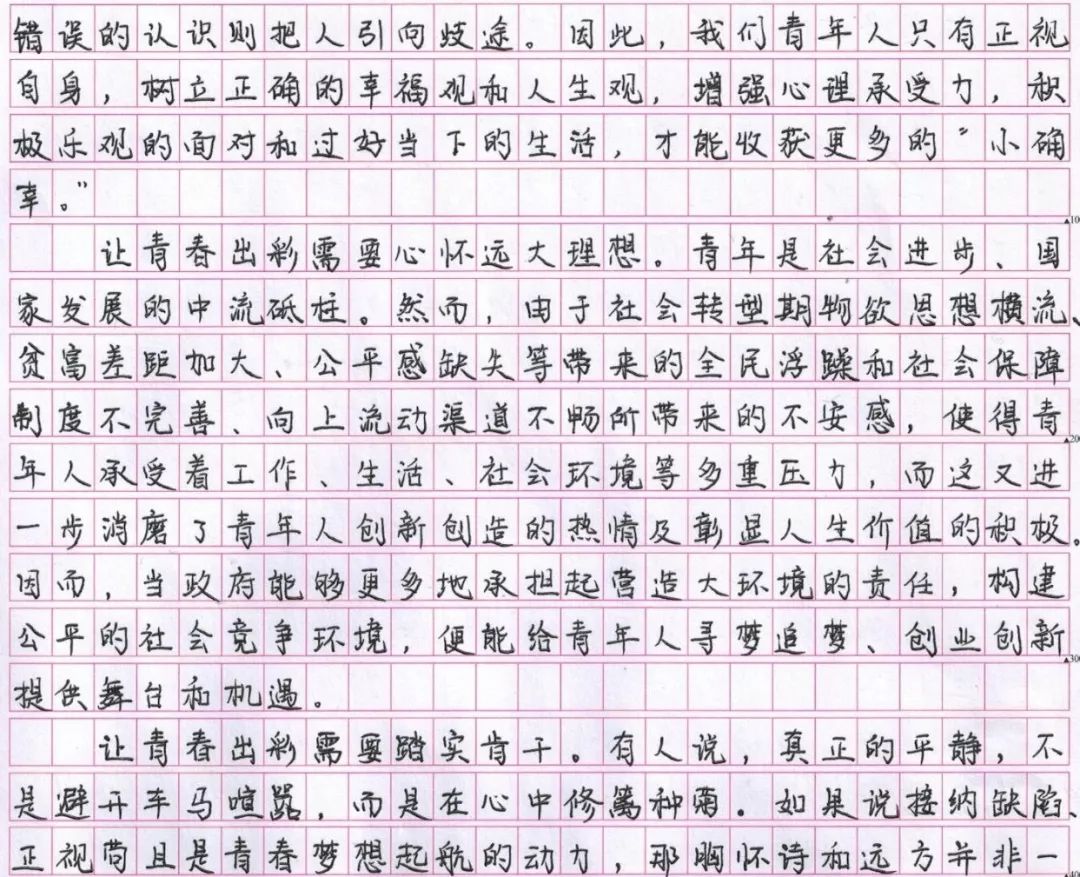 错误的认识则把人引向歧途。因此，我们青年人只有正视
自身，树立正确的幸福观和人生观，增强心理承受力，积
极乐观的面对和过好当下的生活，才能收获更多的“小确
幸。”
让青春出彩需要心怀远大理想。青年是社会进步、国
家发展的中流砥柱。然而，由于社会转型期物欲思想横流、
贫富差距加大、公平感缺失等带来的全民浮躁和社会保障
制度不完善、向上流动渠道不畅所带来的不安感，使得青
年人承受着工作、生活、社会环境等多重压力，而这又进
一步消磨了青年人创新创造的热情及彰显人生价值的积极。
因而，当政府能够更多地承担起营造大环境的责任，构建
公平的社会竞争环境，便能给青年人寻梦追梦、创业创新
提供舞台和机遇。
让青春出彩需要踏实肯干。有人说，真正的平静，不
是避开车马喧嚣，而是在心中修篱种菊。如果说接纳缺陷、
正视苟且是青春梦想起航的动力，那胸怀诗和远方并非一
100
200
300
400